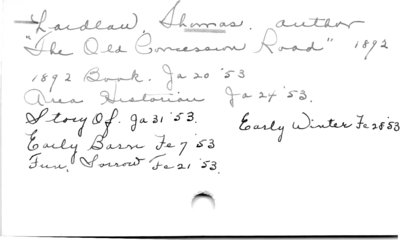 Laidlaw, Thomas, author
"The Old Concession Road" 1892
1892 Book. Ja 20 '53
Area Historian Ja 24 '53.
Story Of. Ja 31 '53. Early Winter Fe 28 '53
Early Barn Fe 7 '53
Fun, Sorrow Fe 21 '53.